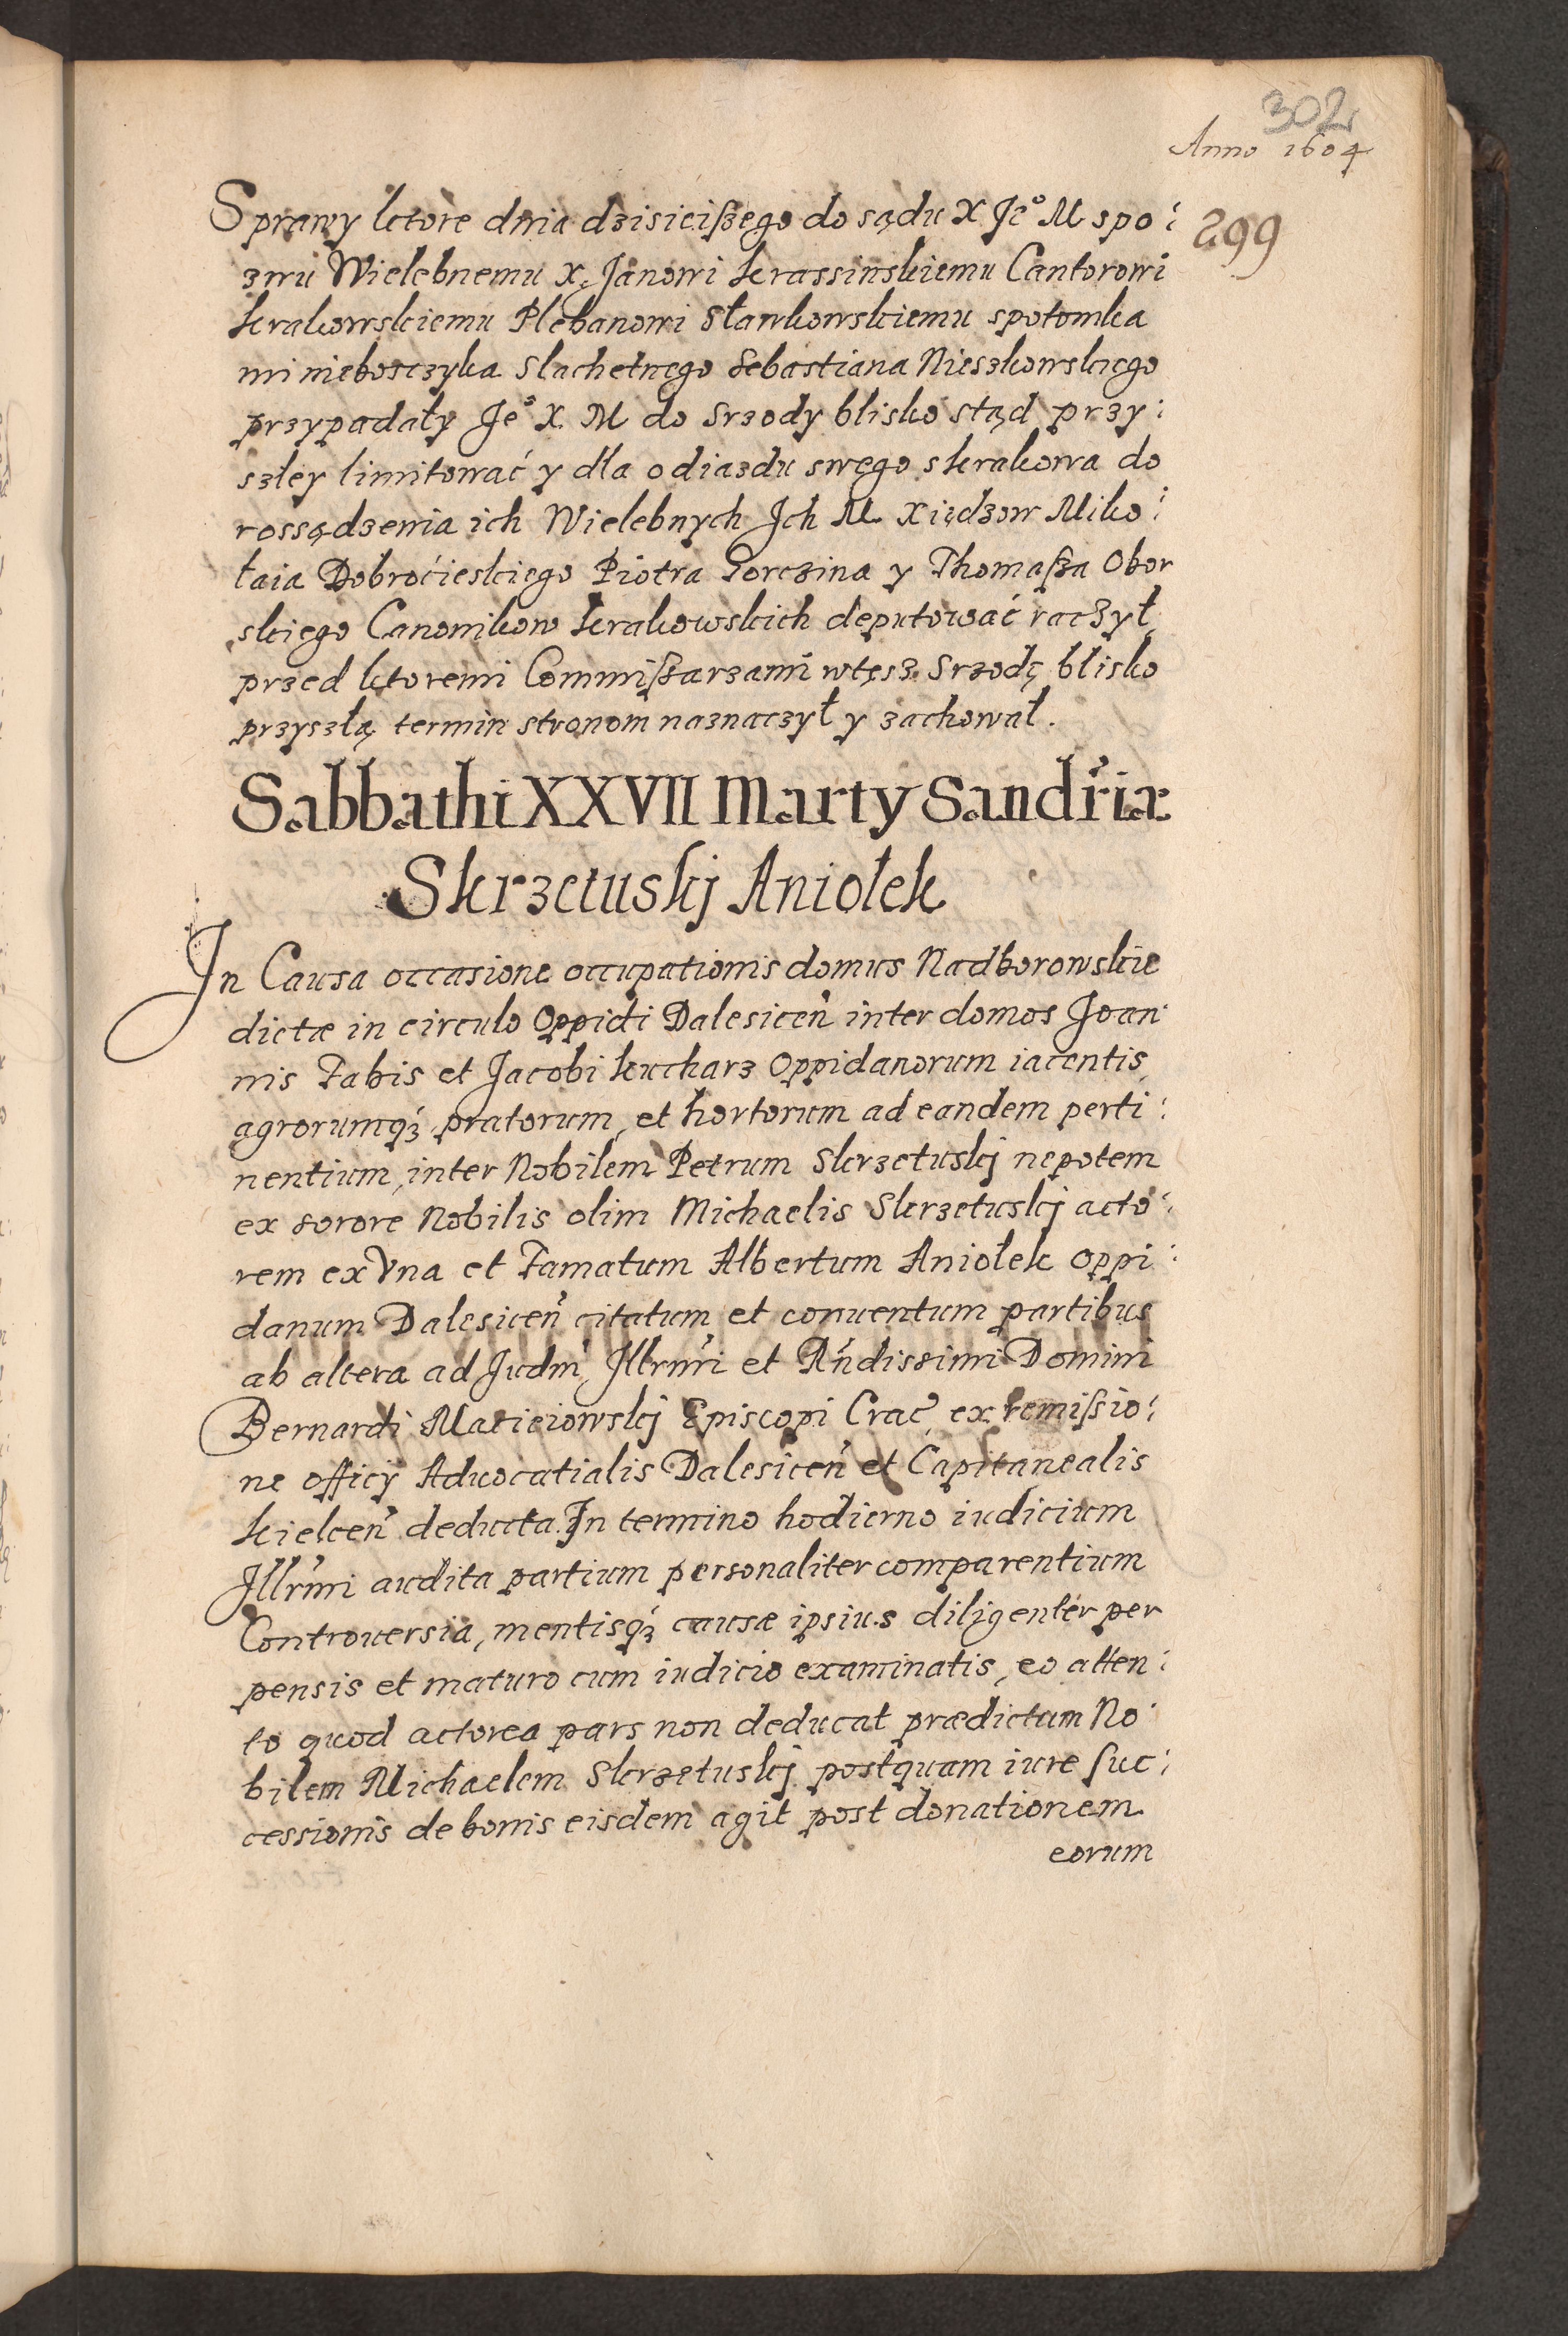 302
Anno 1604
299
Sprawy ktore dnia dzisieißego do sądu X Je° M spo:
zwu Wielebnemu X. Janowi Krassinskiemu Cantorowi
Krakowskiemu Plebanowi Sławkowskiemu spotomka
mi nieboszczyka Slachetnego Sebastiana Nieszkowskiego
przypadały Je° X. M do Srzody blisko stąd przy:
szley limitować y dla odiazdu swego skrakowa do
rossądzenia ich Wielebnych Jch M. Xiędzow Miko:
łaia Dobrocieskiego Piotra Gorczina y Thomaßa Obor
skiego Canonikow Krakowskich deputować raczył,
przed ktoremi Commißarzami wtęsz Srzodę blisko
przyszłą termin stronom naznaczył y zachował.
Sabbathi XXVII Marty Sandr̃iæ
Skrzetuskj Aniołek
Jn Causa occasione occupationis domus Nadborowskie
dictæ in circulo Oppidi Dalesiceñ inter domos Joan:
nis Fabis et Jacobi Kucharz Oppidanorum iacentis,
agrorumqꝫ pratorum, et hortorum ad eandem perti:
nentium, inter Nobilem Petrum Skrzetuskj nepotem
ex sorore Nobilis olim Michaelis Skrzetuskj acto:
rem ex Vna et Famatum Albertum Aniołek oppi:
danum Dalesiceñ citatum et conuentum partibus
ab altera ad Judm̃ Jllrm̃i et Rñdissimi Domini
Bernardi Macieiowskj Episcopi Crac̃, ex remißio:
ne officÿ Aduocatialis Dalesiceñ et Capitanealis
Kielceñ deducta. Jn termino hodierno iudicium
Jllrm̃i audita partium personaliter comparentium
Controuersia, mentisqꝫ causæ ipsius diligentér per
pensis et maturo cum iudicio examinatis, eo atten:
to quod actorea pars non deducat prædictum No:
bilem Michaelem Skrzetuskj postquam iure suc:
cessionis de bonis eisdem agit post donationem
eorum